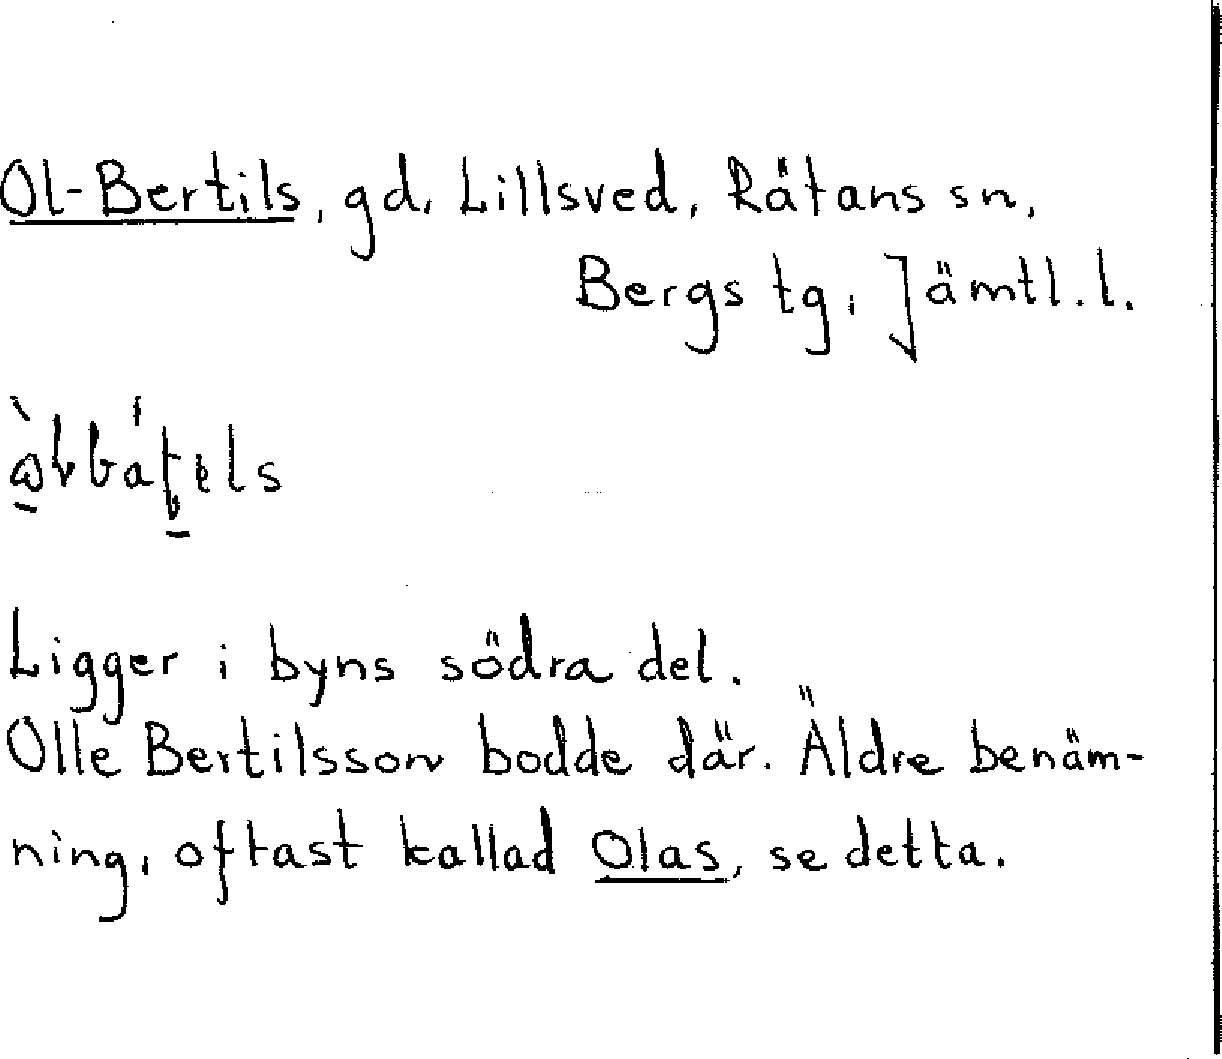 Ol-Bertils, gd, Lillsved, Rätans sn,
Bergs tg, Jämtl.l.
Ligger i byns södra del.
Olle Bertilsson bodde där. Äldre benäm-
ning, oftast kallad Olas, se detta.